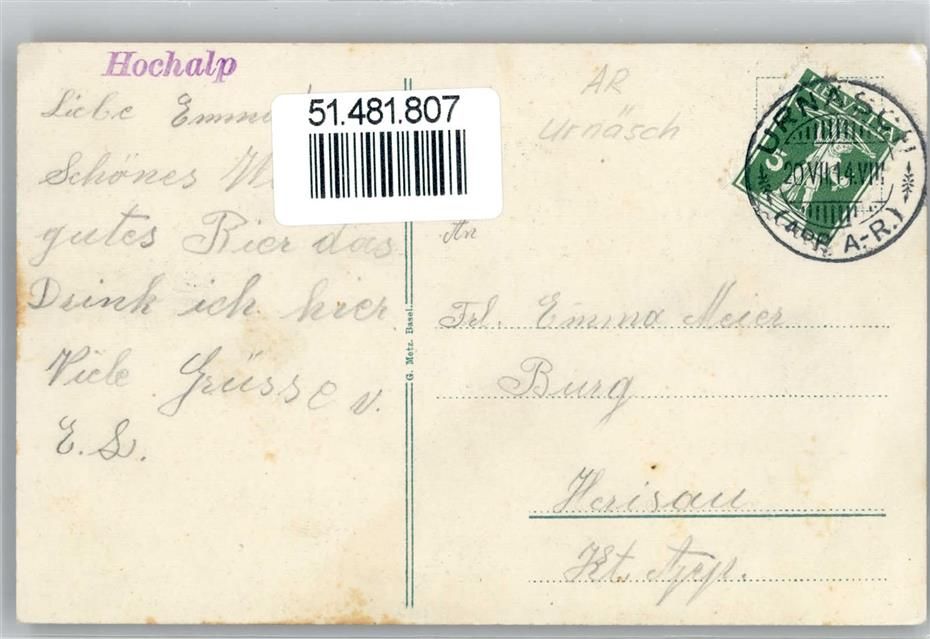 Hochalp
Liebe
Schönes
gutes Bier das
Drink ich hier
Viele Grüsse v.
E. S.
51.481.807
G. Metz. Basel.
AR
Urnäsch
An
Frl. Emma Meier
Burg
Herisau
Kt. App.
URNÄSCH
20.VII.14.VIII
(APP. A-R.)
5